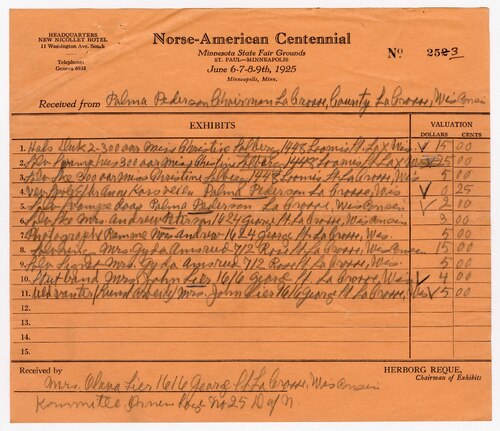 HEADQUARTERS
NEW NICOLLET HOTEL
11 Washington Ave. South
Telephone:
Geneva 6935
Norse-American Centennial
Minnesota State Fair Grounds
ST. PAUL—MINNEAPOLIS
June 6-7-8-9th, 1925
Minneapolis, Minn.
No 2523
Received from Palma Pederson Chairman La Crosse, County La Crosse, Wisconsin
EXHIBITS
VALUATION
DOLLARS CENTS
1. Hals Duk 2-300 aar Miss Christine Solberg 1448 Loomis St. LaX Wis. 15 00
2. Sølv 300 aar Miss Christine Solberg 1448 Loomis St. LaX 25 00
3. Sølv Ske 300 aar Miss Christine Solberg, 1448 Loomis St. La Crosse, Wis. 5 00
4. Palma Pederson La Crosse, Wis. 0 25
5. Palma Pederson La Crosse, Wisconsin 2 10
6. Sølv Ske Mrs. Andrew Peterson 1624 George St. La Crosse, Wisconsin 3 00
7. Photograph Mrs Andrew 1624 George St. La Crosse, Wis. 5 00
8. Mrs. Gyda Amsrud 712 Rose St. La Crosse, Wisconsin 15 00
9. Sølv Mrs. Gyda Amsrud 712 Rose St. La Crosse, Wis. 5 00
10. Mrs. John Lier 1616 George St. La Crosse, Wis. 4 00
11. Mrs. John Lier 1616 George St. La Crosse, Wis 5 00
12.
13.
14.
15.
Received by
HERBORG REQUE,
Chairman of Exhibits
Mrs. Olava Lier 1616 George St. La Crosse, Wisconsin
Kommittee No 25 D of N